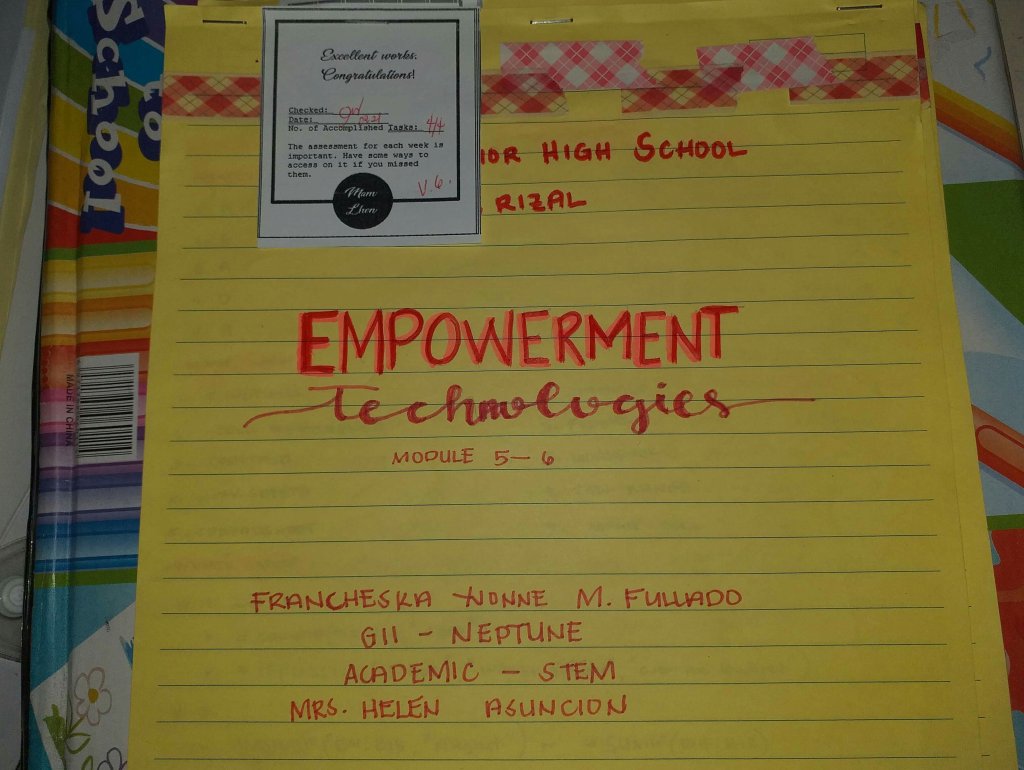 School
to
Excellent works.
Congratulations!
Checked:
Date:
No. of Accomplished Tasks: 4/4
The assessment for each week is
important. Have some ways to
access on it if you missed
them.
V.6.
Mam
Lhen
IOR HIGH SCHOOL
RIZAL
EMPOWERMENT
Technologies
MODULE 5-6
MADE IN CHINA
FRANCHESKA YVONNE M. FULLADO
G11 - NEPTUNE
ACADEMIC - STEM
MRS. HELEN ASUNCION